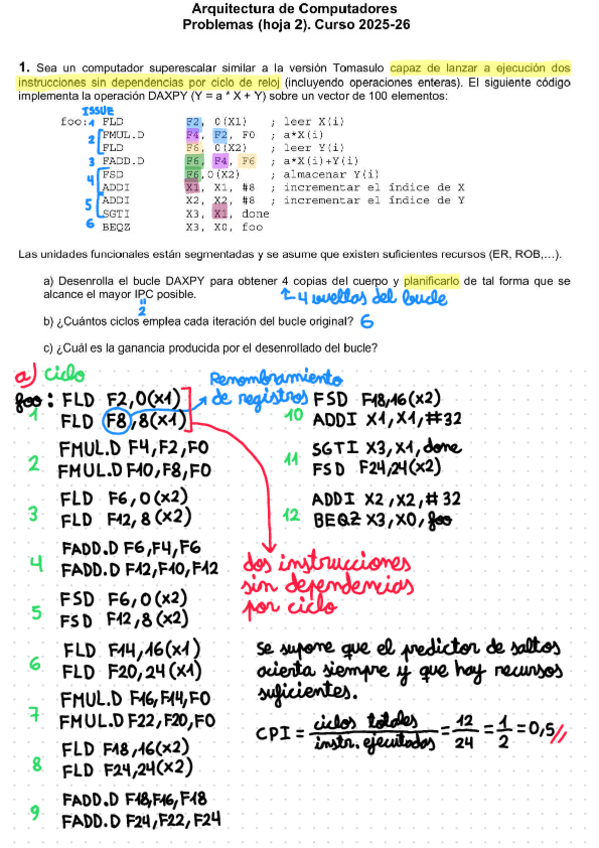 Arquitectura de Computadores
Problemas (hoja 2). Curso 2025-26
1. Sea un computador superescalar similar a la versión Tomasulo capaz de lanzar a ejecución dos
instrucciones sin dependencias por ciclo de reloj (incluyendo operaciones enteras). El siguiente código
implementa la operación DAXPY (Y = a * X + Y) sobre un vector de 100 elementos:
ISSUE
foo: 1 FLD F2, 0(X1) ; leer X(i)
2 FMUL.D F4, F2, F0 ; a*X(i)
FLD F6, 0(X2) ; leer Y(i)
3 FADD.D F6, F4, F6 ; a*X(i)+Y(i)
4 FSD F6,0(X2) ; almacenar Y(i)
ADDI X1, X1, #8 ; incrementar el índice de X
5 ADDI X2, X2, #8 ; incrementar el índice de Y
SGTI X3, X1, done
6 BEQZ X3, X0, foo
Las unidades funcionales están segmentadas y se asume que existen suficientes recursos (ER, ROB,…).
a) Desenrolla el bucle DAXPY para obtener 4 copias del cuerpo y planificarlo de tal forma que se
alcance el mayor IPC posible.
4 vueltas del bucle
"
2
b) ¿Cuántos ciclos emplea cada iteración del bucle original? 6
c) ¿Cuál es la ganancia producida por el desenrollado del bucle?
a) ciclo
foo: FLD F2,0(X1)
1 FLD F8,8(X1)
Renombramiento
de registros
FMUL.D F4,F2,F0
2 FMUL.D F10,F8,F0
FLD F6,0(X2)
3 FLD F12,8(X2)
FADD.D F6,F4,F6
4 FADD.D F12,F10,F12
dos instrucciones
sin dependencias
por ciclo
FSD F6,0(X2)
5 FSD F12,8(X2)
FLD F14,16(X1)
6 FLD F20,24(X1)
FMUL.D F16,F14,F0
7 FMUL.D F22,F20,F0
FLD F18,16(X2)
8 FLD F24,24(X2)
FADD.D F18,F16,F18
9 FADD.D F24,F22,F24
FSD F18,16(X2)
10 ADDI X1,X1,#32
SGTI X3,X1,done
11 FSD F24,24(X2)
ADDI X2,X2,#32
12 BEQZ X3,X0,foo
Se supone que el predictor de saltos
acierta siempre y que hay recursos
suficientes.
CPI = ciclos totales / instr. ejecutadas = 12/24 = 1/2 = 0,5//